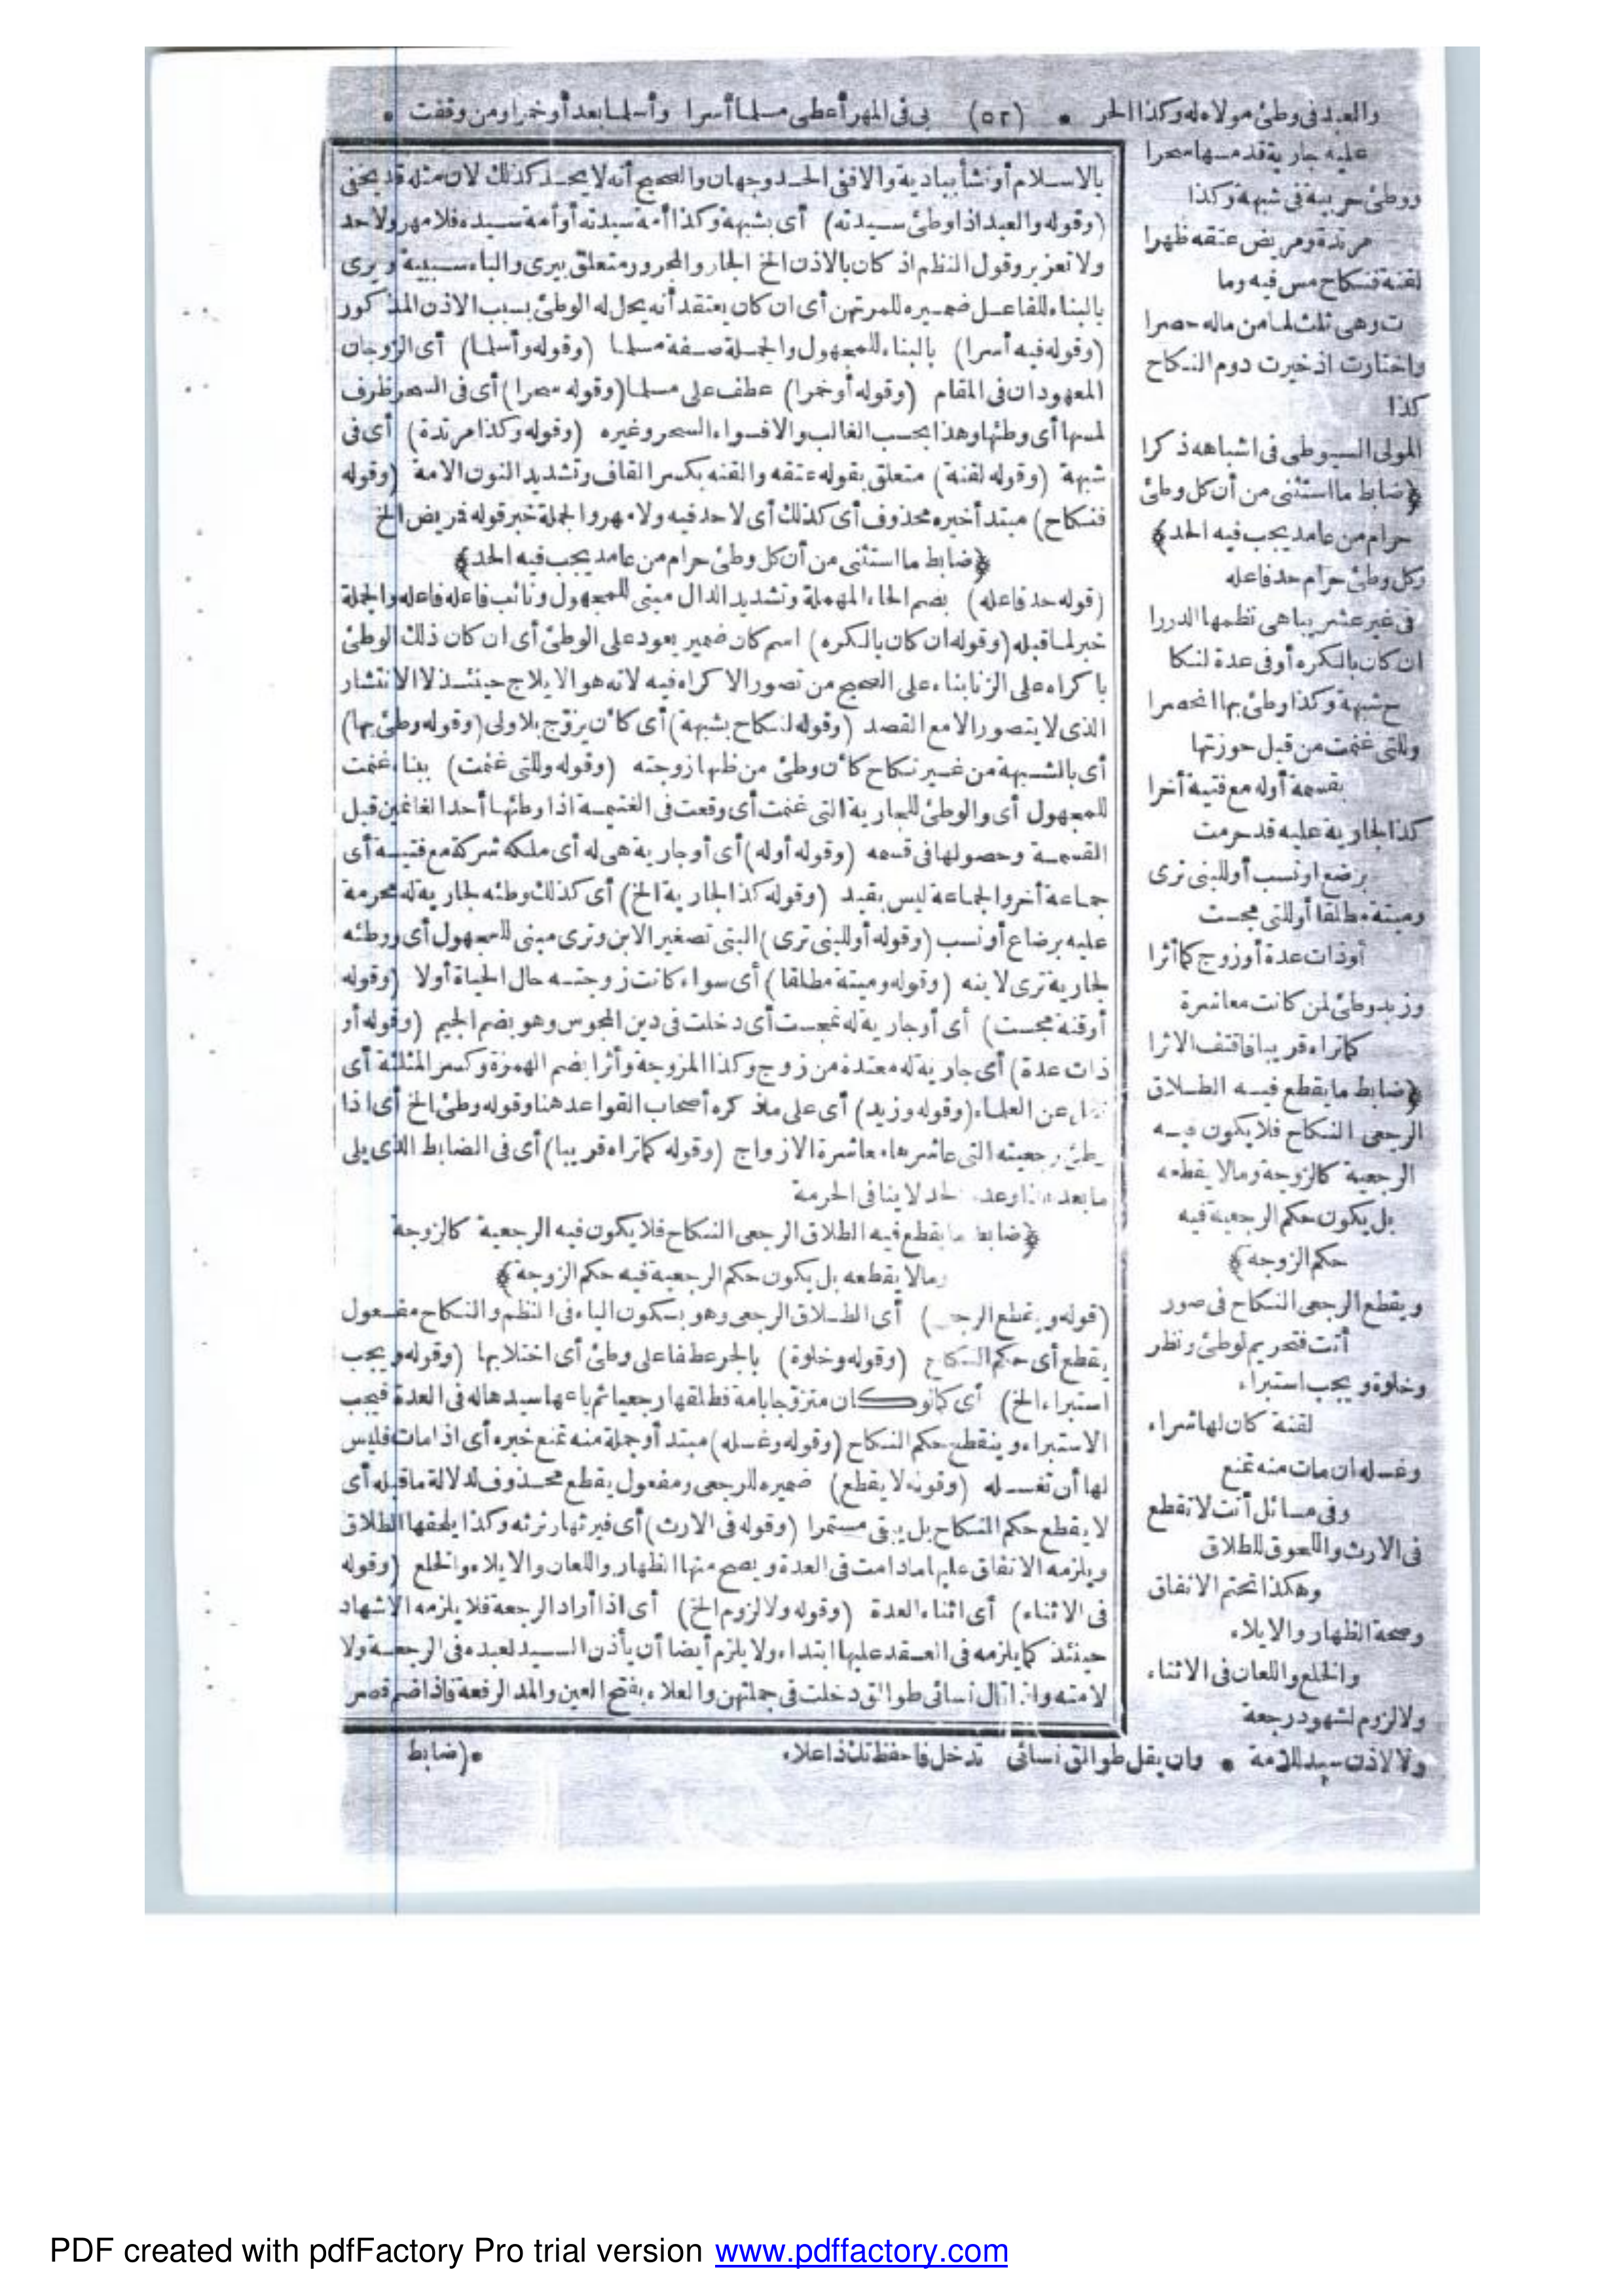 والعبد فى وطئ مولاه له وكذا الحر • (٥٢) بى فى المهر أعطى مسلما أسرا وأسلما بعد أو خمرا ومن وقفت •
عليه جارية قد مسها سحرا
ووطئ حربية فى شبهة وكذا
مرتدة ومريض عتقه ظهرا
لقنة فنكاح مس فيه وما
ت وهى ثلث لما من ماله حصرا
واختارت اذ خيرت دوم النكاح
كذا
المولى السيوطى فى اشباهه ذكرا
﴿ضابط ما استثنى من أن كل وطئ
حرام من عامد يجب فيه الحد﴾
وكل وطئ حرام حد فاعله
فى غير عشر يباهى نظمها الدررا
ان كان بالكره أو فى عدة لنكا
ح شبهة وكذا وطئ بها انحصرا
وللتى غنمت من قبل حوزتها
بقسمة أوله مع فتية أخرا
كذا الجارية عليه قد حرمت
برضع او نسب أو للبنى ترى
وميتة مطلقا أو للتى مجست
أو ذات عدة أو زوج كما أثرا
وزيد وطئ لمن كانت معاشرة
كما تراه قريبا فاقتف الاثرا
﴿ضابط ما يقطع فيه الطلاق
الرجعى النكاح فلا يكون فيه
الرجعية كالزوجة وما لا يقطعه
بل يكون حكم الرجعية فيه
حكم الزوجة﴾
ويقطع الرجعى النكاح فى صور
أتت فتحريم لوطئ ونظر
وخلوة ويجب استبراء
لقنة كان لها شراء
وغسله ان مات منه تمنع
وفى مسائل أتت لا تقطع
فى الارث واللحوق للطلاق
وهكذا تحتم الانفاق
وصحة الظهار والايلاء
والخلع واللعان فى الاثناء
ولا لزوم لشهود رجعة
ولا لاذن سيد للامة • وان يقل طوالق نسائى تدخل فاحفظ تلك ذا علاء
بالاسلام أو نشأ ببادية والا ففى الحد وجهان والصحيح أنه لا يحد كذلك لان مثله قد يخفى
(وقوله والعبد اذا وطئ سيدته) أى بشبهة وكذا أمة سيدته أو أمة سيده فلا مهر ولا حد
ولا تعزير وقول النظم اذ كان بالاذن الخ الجار والمجرور متعلق بيرى والباء سببية ويرى
بالبناء للفاعل ضميره للمرتهن أى ان كان يعتقد أنه يحل له الوطئ بسبب الاذن المذكور
(وقوله فيه أسرا) بالبناء للمجهول والجملة صفة مسلما (وقوله وأسلما) أى الزوجان
المعهودان فى المقام (وقوله أو خمرا) عطف على مسلما (وقوله سحرا) أى فى السحر ظرف
لمسها أى وطئها وهذا بحسب الغالب والا فسواء السحر وغيره (وقوله وكذا مرتدة) أى فى
شبهة (وقوله لقنة) متعلق بقوله عتقه والقنه بكسر القاف وتشديد النون الامة (وقوله
فنكاح) مبتدأ خبره محذوف أى كذلك أى لا حد فيه ولا مهر والجملة خبر قوله فمريض الخ
﴿ضابط ما استثنى من أن كل وطئ حرام من عامد يجب فيه الحد﴾
(قوله حد فاعله) بضم الحاء المهملة وتشديد الدال مبنى للمجهول ونائب فاعله فاعله والجملة
خبر لما قبله (وقوله ان كان بالكره) اسم كان ضمير يعود على الوطئ أى ان كان ذلك الوطئ
باكراه على الزنا بناء على الصحيح من تصور الاكراه فيه لانه هو الايلاج حينئذ لا الانتشار
الذى لا يتصور الا مع القصد (وقوله لنكاح بشبهة) أى كأن يزوّج بلا ولى (وقوله وطئ بها)
أى بالشبهة من غير نكاح كأن وطئ من ظنها زوجته (وقوله وللتى غنمت) ببناء غنمت
للمجهول أى والوطئ للجارية التى غنمت أى وقعت فى الغنيمة اذا وطئها أحد الغانمين قبل
القسمة وحصولها فى قسمه (وقوله أوله) أى أو جارية هى له أى ملكه شركة مع فتية أى
جماعة أخر والجماعة ليس بقيد (وقوله كذا الجارية الخ) أى كذلك وطئه لجارية له محرمة
عليه برضاع أو نسب (وقوله أو للبنى ترى) البنى تصغير الابن وترى مبنى للمجهول أى ووطئه
لجارية ترى لابنه (وقوله وميتة مطلقا) أى سواء كانت زوجته حال الحياة أو لا (وقوله
أو قنة مجست) أى أو جارية له تمجست أى دخلت فى دين المجوس وهو بضم الجيم (وقوله أو
ذات عدة) أى جارية له معتدة من زوج وكذا المزوجة وأثرا بضم الهمزة وكسر المثلثة أى
عن العلماء (وقوله وزيد) أى على ما ذكره أصحاب القواعد هنا وقوله وطئ الخ أى اذا
وطئ رجعيته التى عاشرها معاشرة الازواج (وقوله كما تراه قريبا) أى فى الضابط الذى يلى
ما بعد لا ينافى الحرمة
﴿ضابط ما يقطع فيه الطلاق الرجعى النكاح فلا يكون فيه الرجعية كالزوجة
وما لا يقطعه بل يكون حكم الرجعية فيه حكم الزوجة﴾
(قوله ويقطع الرجعى) أى الطلاق الرجعى وهو بسكون الياء فى النظم والنكاح مفعول
يقطع أى حكم النكاح (وقوله وخلوة) بالجر عطفا على وطئ أى اختلا بها (وقوله ويجب
استبراء الخ) أى كما لو كان متزوجا بامة فطلقها رجعيا ثم باعها سيدها له فى العدة فيجب
الاستبراء وينقطع حكم النكاح (وقوله وغسله) مبتدأ وجملة منه تمنع خبره أى اذا مات فليس
لها أن تغسله (وقوله لا يقطع) ضميره للرجعى ومفعول يقطع محذوف لدلالة ما قبله أى
لا يقطع حكم النكاح بل يبقى مستمرا (وقوله فى الارث) أى فيرثها وترثه وكذا يلحقها الطلاق
ويلزمه الانفاق عليها ما دامت فى العدة ويصح منها الظهار واللعان والايلاء والخلع (وقوله
فى الاثناء) أى اثناء العدة (وقوله ولا لزوم الخ) أى اذا أراد الرجعة فلا يلزمه الاشهاد
حينئذ كما يلزمه فى العقد عليها ابتداء ولا يلزم أيضا أن يأذن السيد لعبده فى الرجعة ولا
لامته واذا قال نسائى طوالق دخلت فى جملتهن والعلاء بفتح العين والمد الرفعة فاذا ضم قصر
•(ضابط
PDF created with pdfFactory Pro trial version www.pdffactory.com